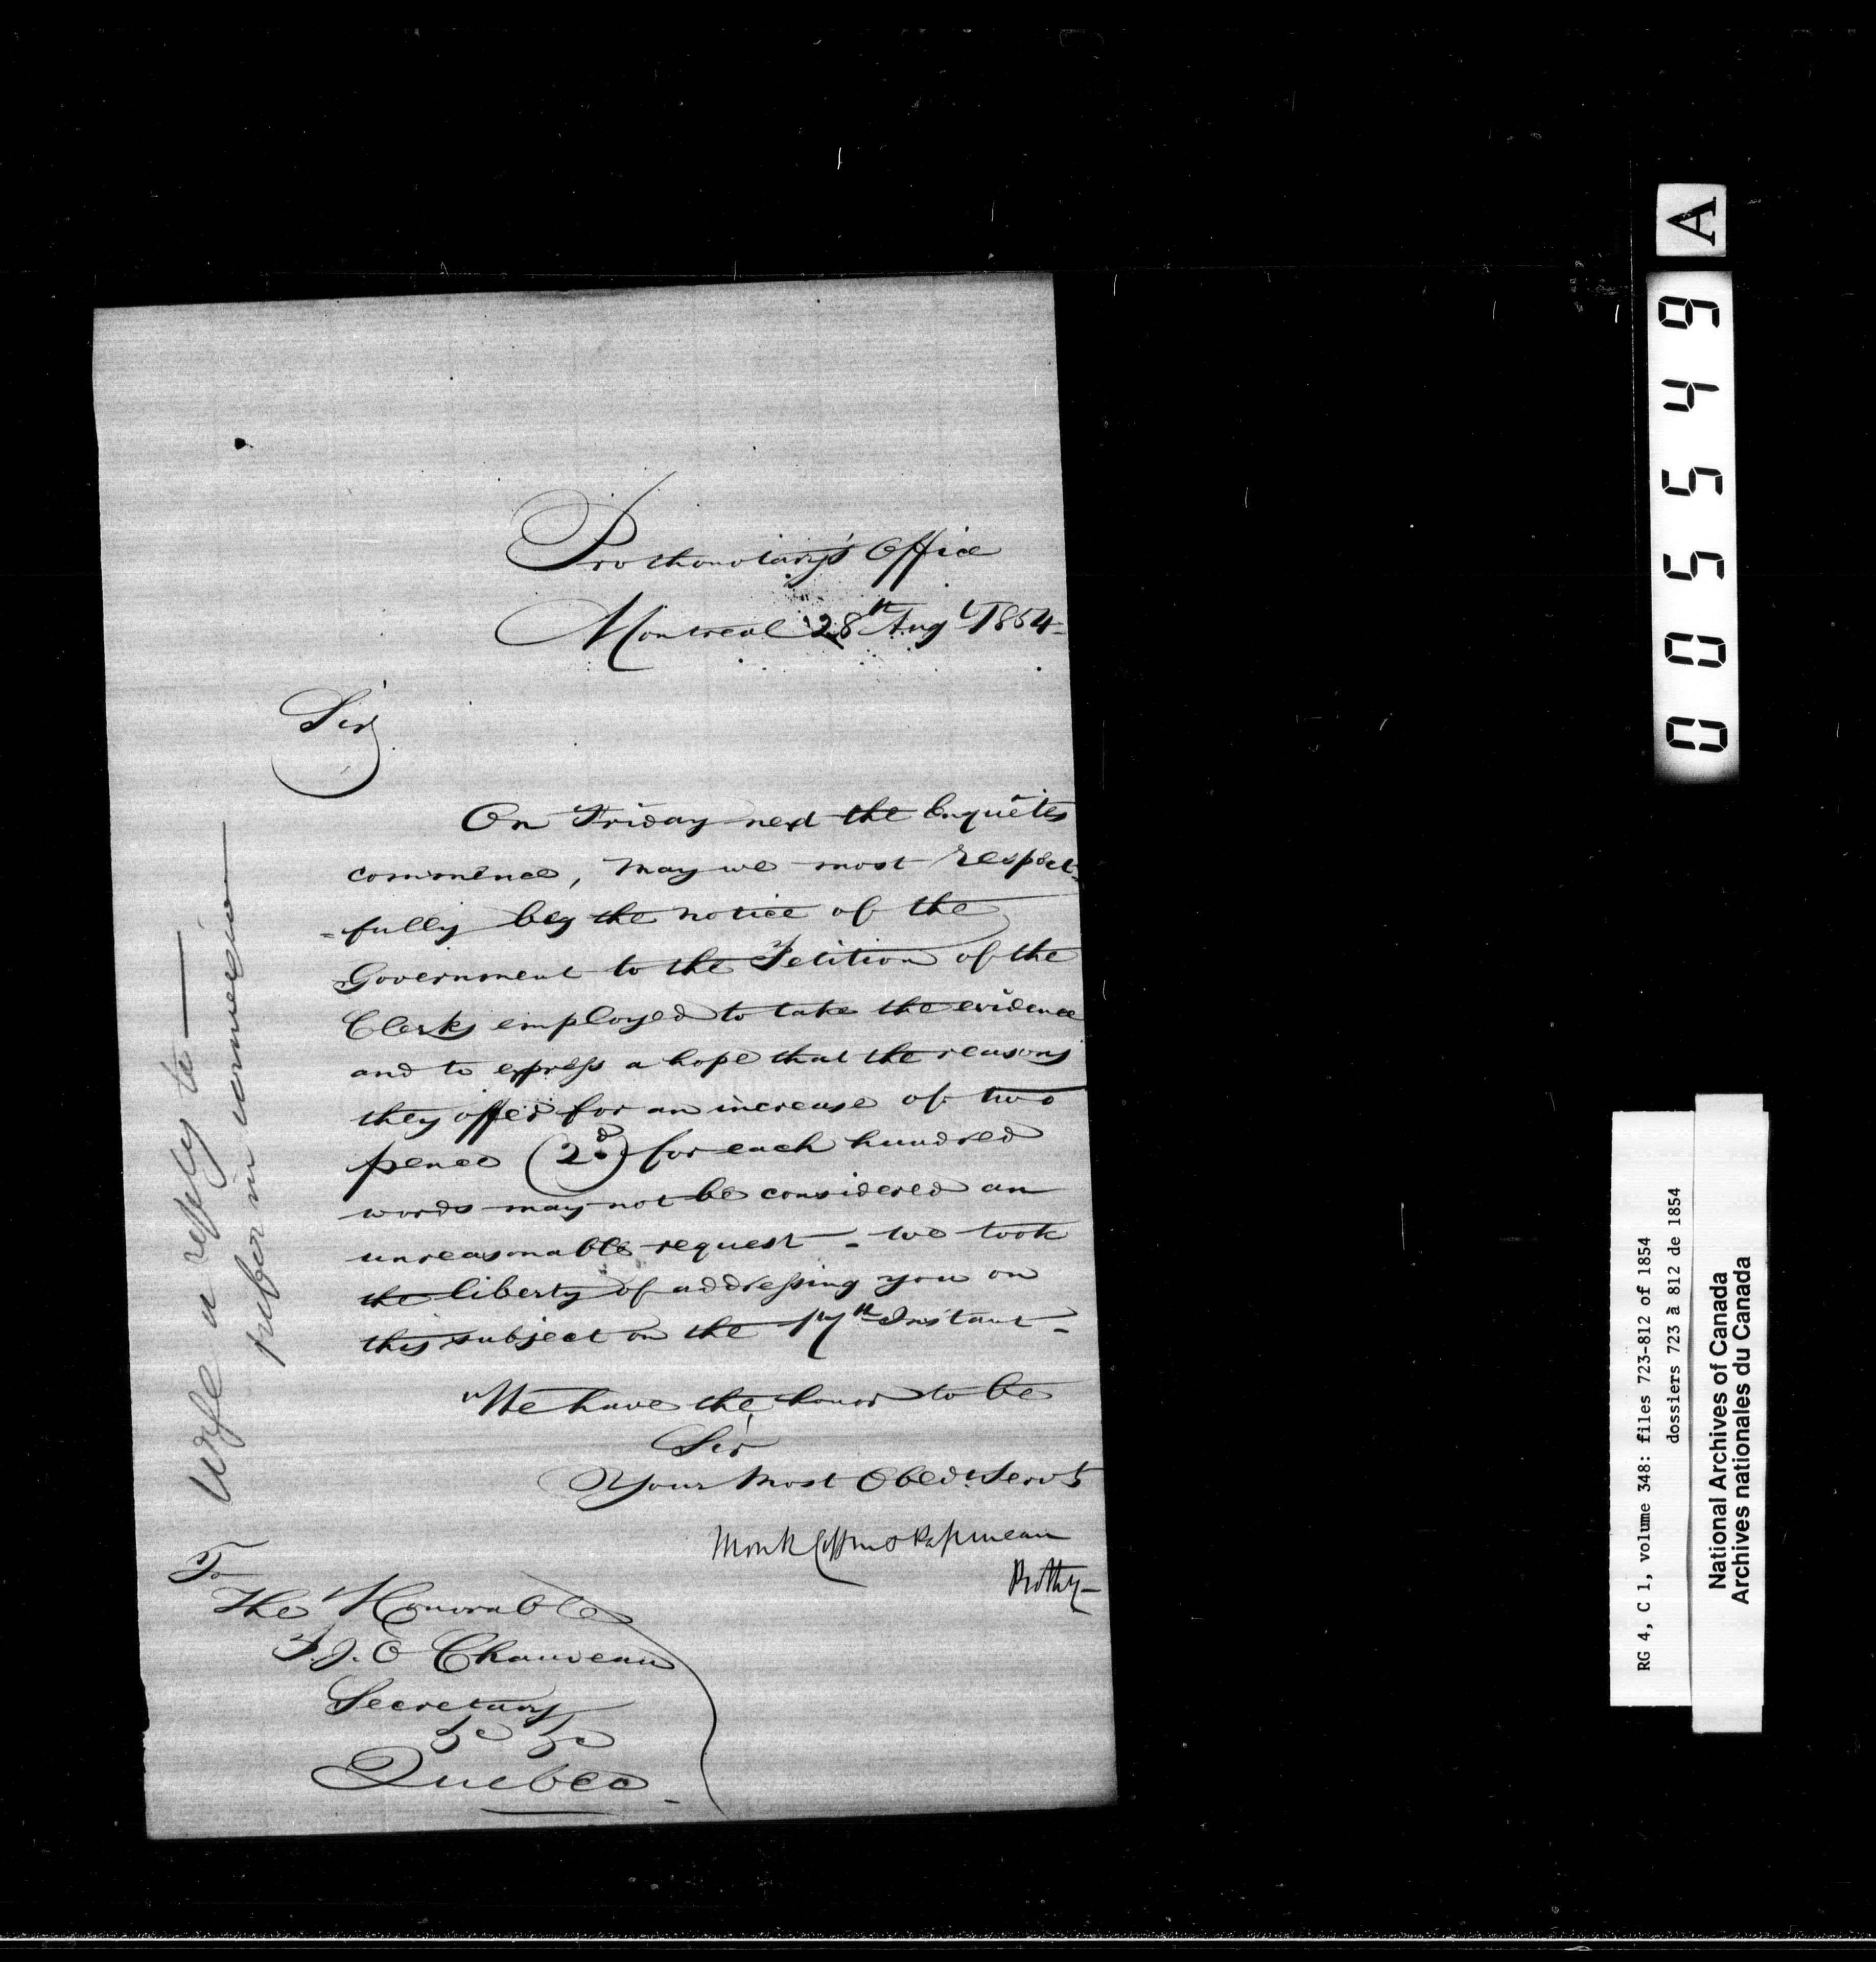 Prothonotary's Office
Montreal 28th Augt 1854-
Sir
On Friday next the Enquêtes
commence, may we most respect-
=fully beg the notice of the
Government to the Petition of the
Clerks employed to take the evidence
and to express a hope that the reasons
they offer for an increase of two
pence (2d) for each hundred
words may not be considered an
unreasonable request - we took
the liberty of addressing you on
this subject on the 17th Instant -
We have the honor to be
Sir
Your Most Obedt Servts
Monk Coffin & Papineau
Prothy-
To
The Honorable
P.J.O Chauveau
Secretary
&c &c
Quebec -
a reply to -
prefer in
A
005549
RG 4, C 1, volume 348: files 723-812 of 1854
dossiers 723 à 812 de 1854
National Archives of Canada
Archives nationales du Canada